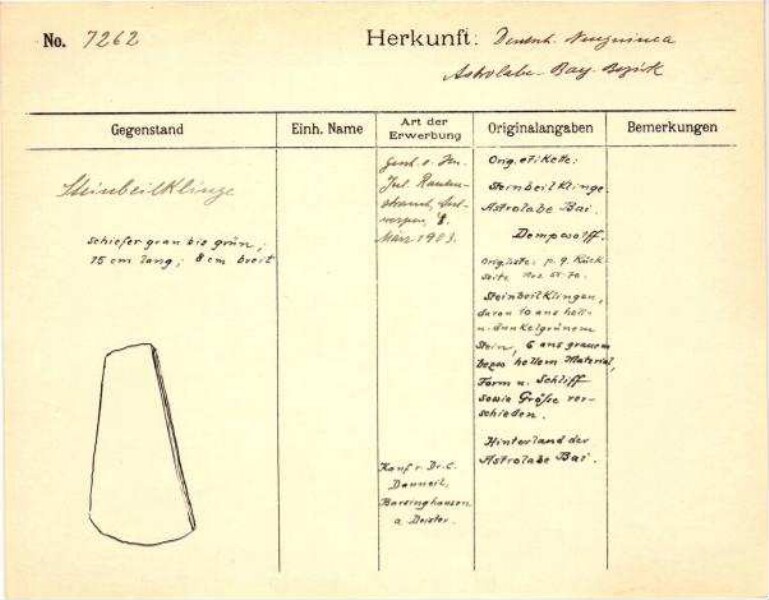 No. 7262 Herkunft: Deutsch. Neuguinea
Astrolabe-Bay-Bezirk
Gegenstand
Einh. Name
Art der
Erwerbung
Originalangaben
Bemerkungen
Steinbeilklinge
schiefer grau bis grün;
15 cm lang; 8 cm breit
Gesch. v. Hn.
Jul. Rauten-
strauch, Ant-
werpen, 8.
März 1903.
Kauf v. Dr. C.
Danneil,
Barsinghausen
a. Deister.
Orig. etikette:
Steinbeilklinge.
Astrolabe Bai.
Dempwolff.
Orig. liste: p. 9. Rück-
seite Nos
Steinbeilklingen,
davon 10 aus hell-
u. dunkelgrünem
Stein, 6 aus grauem
bezw hellem Material,
Form u. Schliff
sowie Größe ver-
schieden.
Hinterland der
Astrolabe Bai.